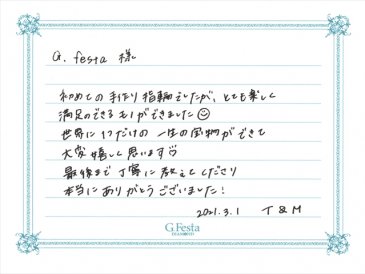 G. festa 様
初めての手作り指輪でしたが、とても楽しく
満足のできるモノができました☺
世界に1つだけの一生の宝物ができて
大変嬉しく思います♡
最後まで丁寧に教えてくださり
本当にありがとうございました!
2021.3.1 T & M
G.Festa